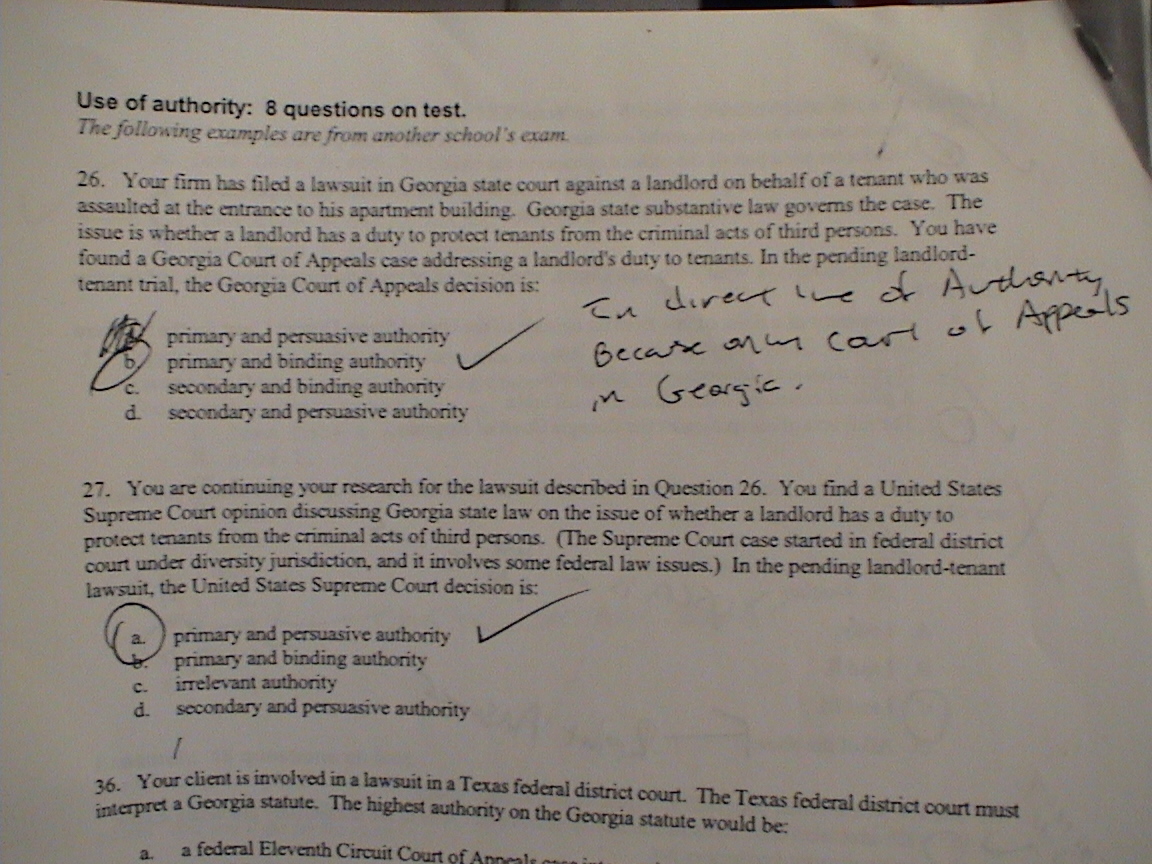 Use of authority: 8 questions on test.
The following examples are from another school's exam.
26. Your firm has filed a lawsuit in Georgia state court against a landlord on behalf of a tenant who was
assaulted at the entrance to his apartment building. Georgia state substantive law governs the case. The
issue is whether a landlord has a duty to protect tenants from the criminal acts of third persons. You have
found a Georgia Court of Appeals case addressing a landlord's duty to tenants. In the pending landlord-
tenant trial, the Georgia Court of Appeals decision is:
In direct line of Authority
Because only court of Appeals
in Georgia.
primary and persuasive authority
b. primary and binding authority
c. secondary and binding authority
d. secondary and persuasive authority
27. You are continuing your research for the lawsuit described in Question 26. You find a United States
Supreme Court opinion discussing Georgia state law on the issue of whether a landlord has a duty to
protect tenants from the criminal acts of third persons. (The Supreme Court case started in federal district
court under diversity jurisdiction, and it involves some federal law issues.) In the pending landlord-tenant
lawsuit, the United States Supreme Court decision is:
a. primary and persuasive authority
b. primary and binding authority
c. irrelevant authority
d. secondary and persuasive authority
36. Your client is involved in a lawsuit in a Texas federal district court. The Texas federal district court must
interpret a Georgia statute. The highest authority on the Georgia statute would be:
a. a federal Eleventh Circuit Court of Appeals case